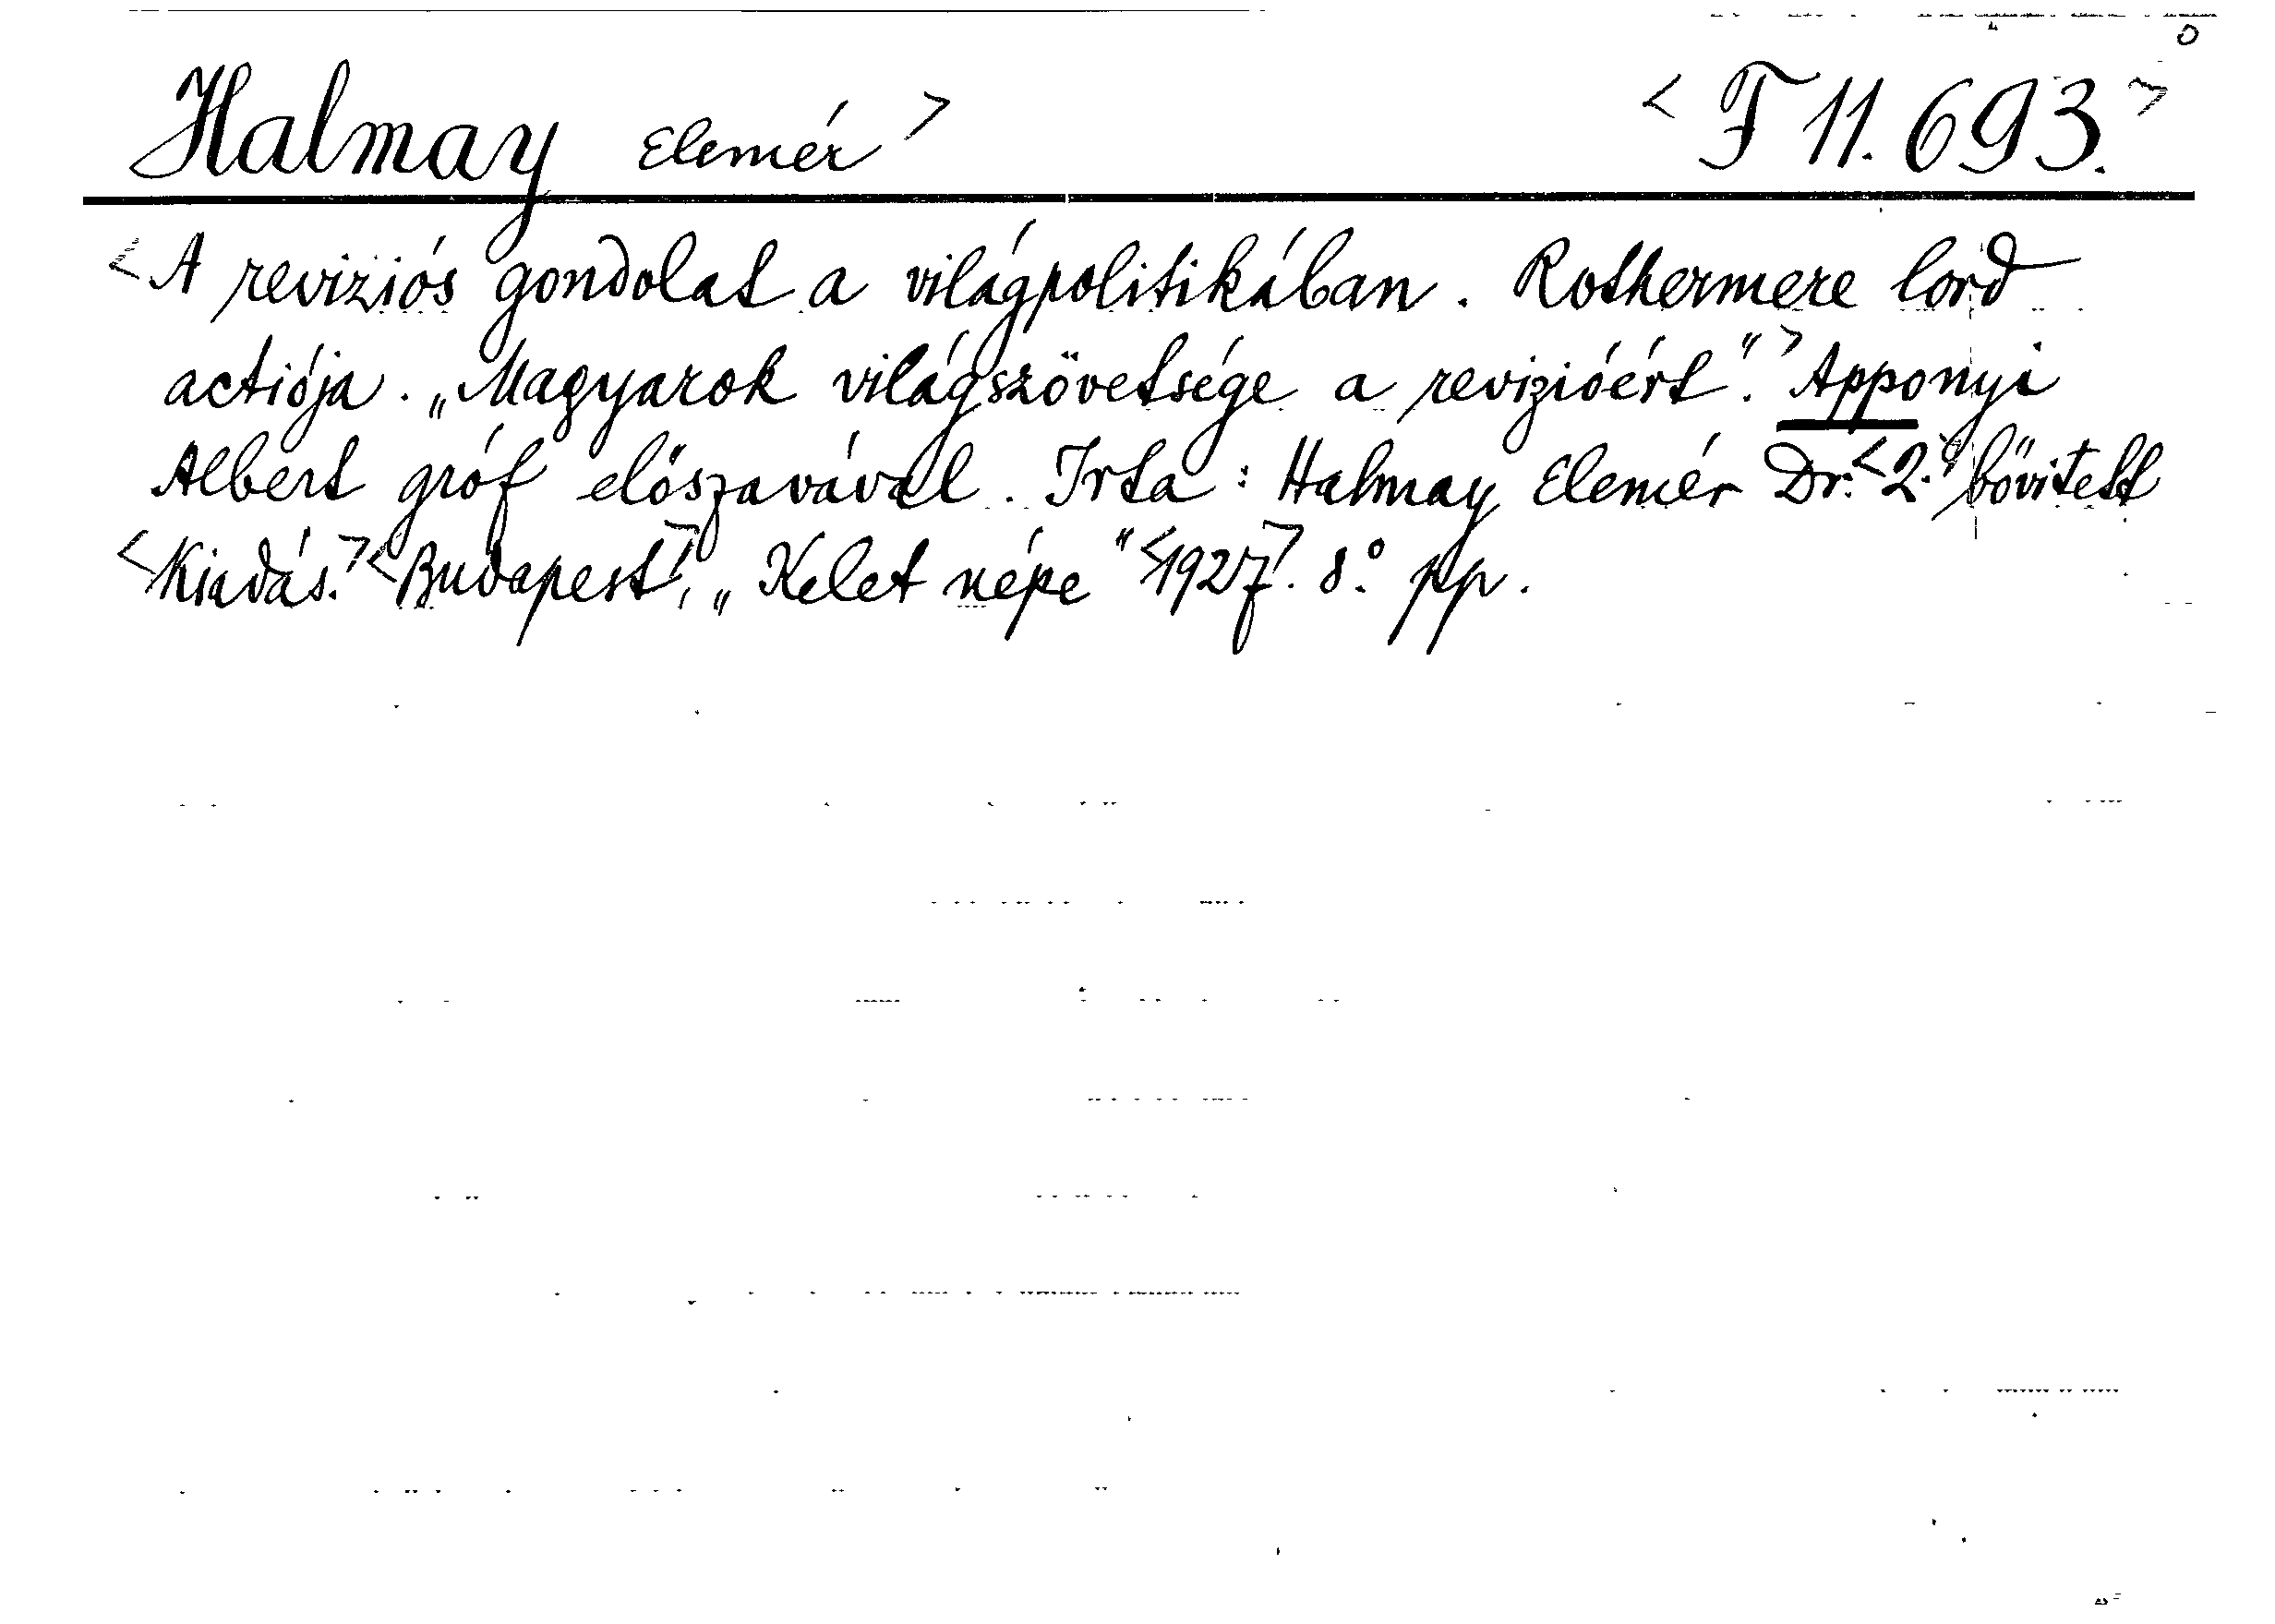 Halmay Elemér > < F 11.693. >
< A reviziós gondolat a világpolitikában. Rothermere lord
actiója. „Magyarok világszövetsége a revizióért". > Apponyi
Albert gróf előszavával. Irta: Halmay Elemér Dr. < 2. > bővitett
< Kiadás. > < Budapest >, „Kelet népe" < 1927 >. 8°. pp.